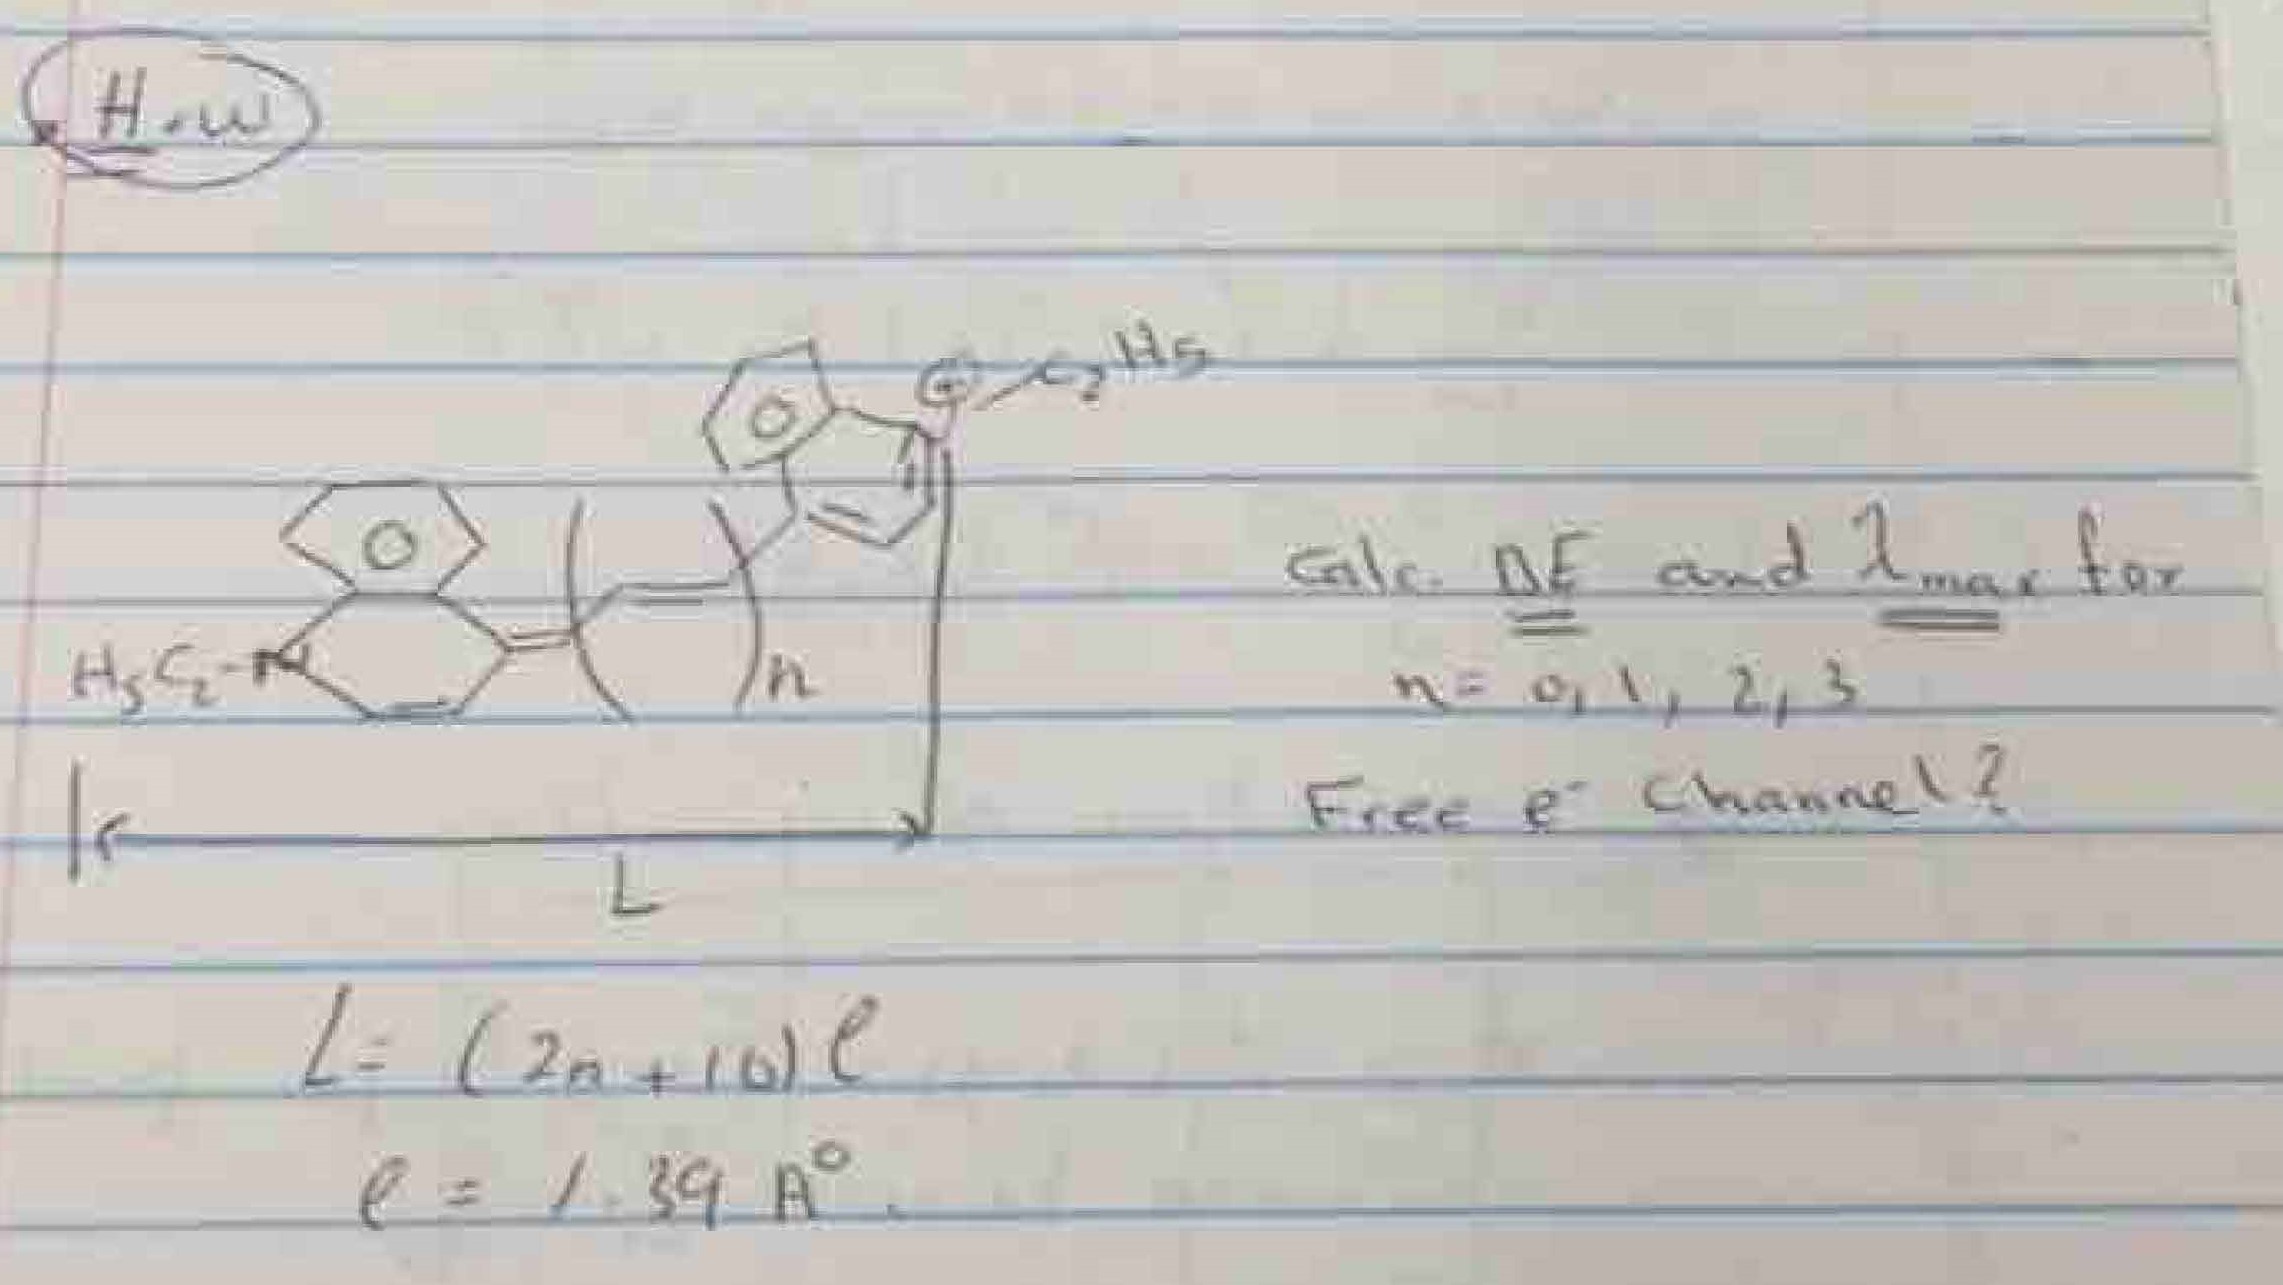 H.w
C2H5
H5C2-N
n
Calc. ΔE and λmax for
n = 0, 1, 2, 3
Free e- channel?
L
L = (2n + 10) l
l = 1.39 A°.